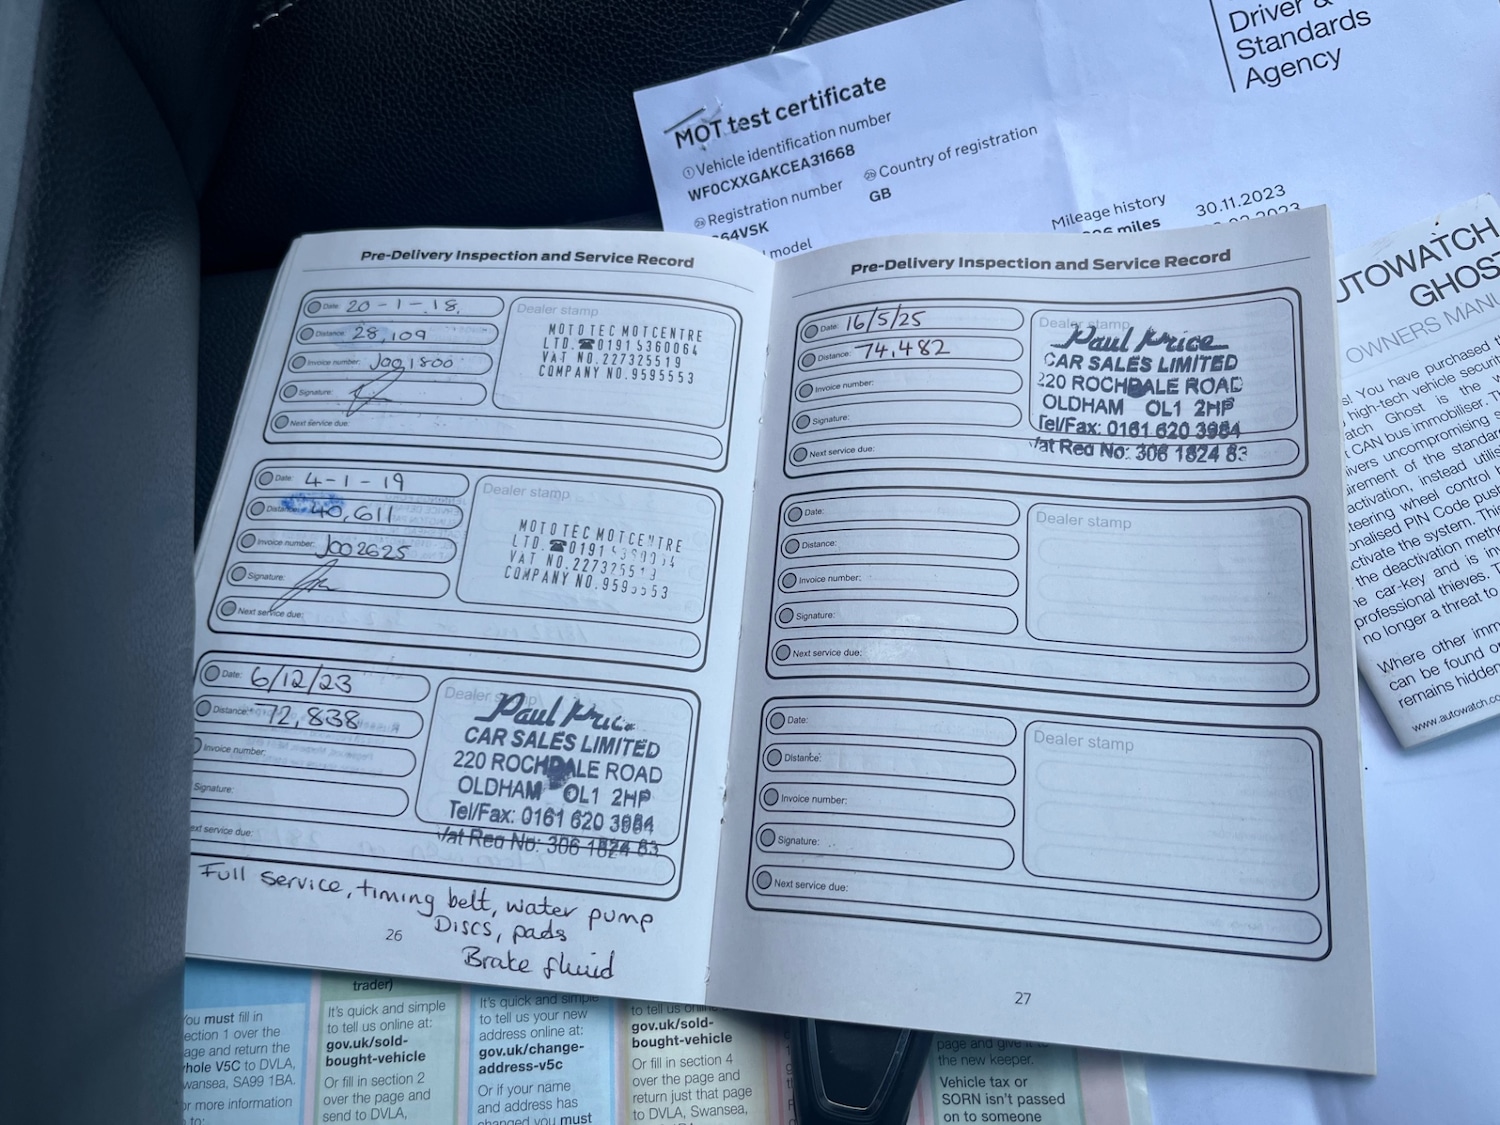 Driver &
Standards
Agency
MOT test certificate
① Vehicle identification number
WF0CXXGAKCEA31668
㉘ Country of registration
GB
② Registration number
64VSK
model
Mileage history
miles
30.11.2023
Pre-Delivery Inspection and Service Record
Date: 20-1-18.
Distance: 28,109
Invoice number: J001800
Signature:
Next service due:
Dealer stamp
MOTOTEC MOTCENTRE
LTD. ☎01915360064
VAT NO.227325519
COMPANY NO.9595553
Date: 4-1-19
Distance: 40,611
Invoice number: J002625
Signature:
Next service due:
Dealer stamp
MOTOTEC MOTCENTRE
LTD. ☎0191
VAT NO.
COMPANY NO.
Date: 6/12/23
Distance: 72,838
Invoice number:
Signature:
ext service due:
Dealer stamp
Paul Pric
CAR SALES LIMITED
220 ROCHDALE ROAD
OLDHAM OL1 2HP
Tel/Fax: 0161 620 3984
Vat Reg No: 306 1824 83
Full service, timing belt, water pump
Discs, pads
Brake fluid
26
Pre-Delivery Inspection and Service Record
Date: 16/5/25
Distance: 74,482
Invoice number:
Signature:
Next service due:
Dealer stamp
Paul Price
CAR SALES LIMITED
220 ROCHDALE ROAD
OLDHAM OL1 2HP
Tel/Fax: 0161 620 3984
Vat Reg No: 306 1824 83
Date:
Distance:
Invoice number:
Signature:
Next service due:
Dealer stamp
Date:
Distance:
Invoice number:
Signature:
Next service due:
Dealer stamp
27
UTOWATCH
GHOST
OWNERS MANU
s! You have purchased
high-tech vehicle securit
atch Ghost is the
t CAN bus immobiliser.
ivers uncompromising
irement of the standar
activation, instead utilis
teering wheel control
onalised PIN Code
ctivate the system.
the deactivation meth
car-key and is
professional thieves.
no longer a threat to
Where other imm
can be found
remains hidden
www.autowatch.co
You must fill in
ection 1 over the
age and return the
whole V5C to DVLA,
wansea, SA99 1BA.
or more information
to:
trader)
It's quick and simple
to tell us online at:
gov.uk/sold-
bought-vehicle
Or fill in section 2
over the page and
send to DVLA,
It's quick and simple
to tell us your new
address online at:
gov.uk/change-
address-v5c
Or if your name
and address has
changed you must
to tell us online at:
gov.uk/sold-
bought-vehicle
Or fill in section 4
over the page and
return just that page
to DVLA, Swansea,
page and give it to
the new keeper.
Vehicle tax or
SORN isn't passed
on to someone